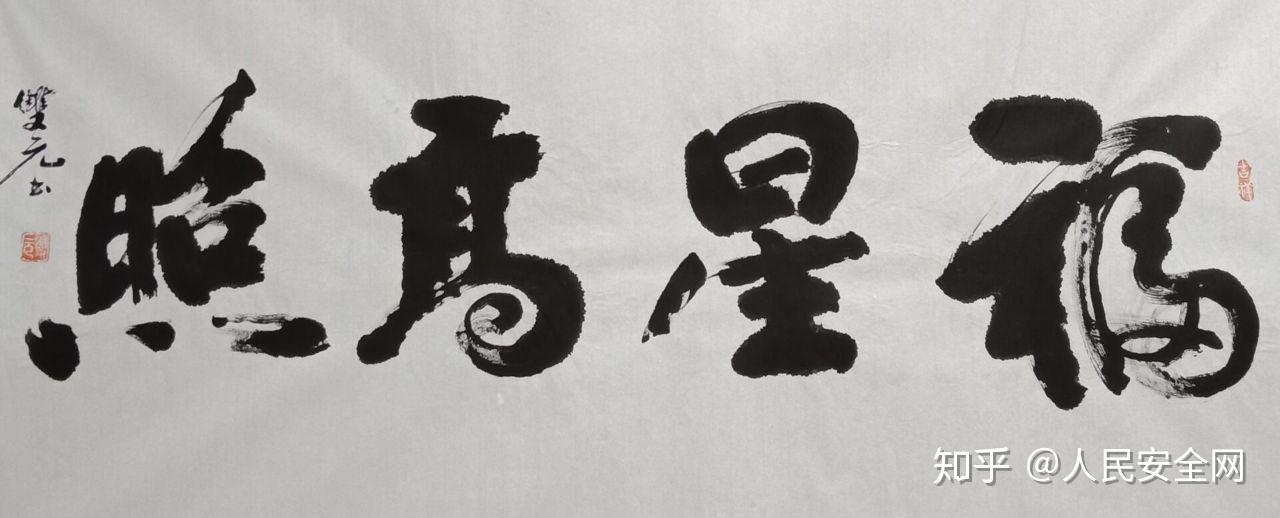 福星高照
雙元书
知乎 @人民安全网